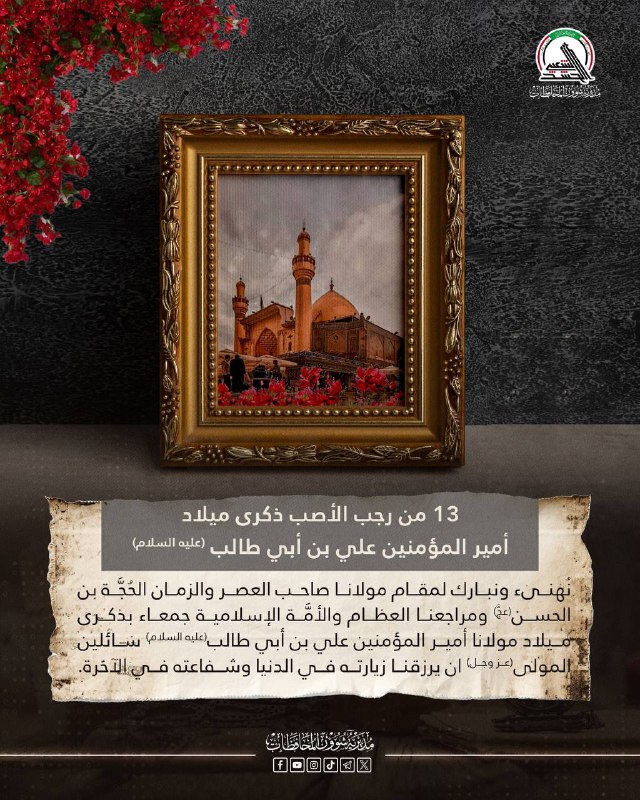 الحشد الشعبي
مديرية شؤون المحافظات
13 من رجب الأصب ذكرى ميلاد
أمير المؤمنين علي بن أبي طالب (عليه السلام)
نُهنىء ونبارك لمقام مولانا صاحب العصر والزمان الحُجَّة بن
الحسن(عج) ومراجعنا العظام والأمَّة الإسلامية جمعاء بذكرى
ميلاد مولانا أمير المؤمنين علي بن أبي طالب(عليه السلام) سائلين
المولى(عز وجل) ان يرزقنا زيارته في الدنيا وشفاعته في الآخرة.
مديرية شؤون المحافظات